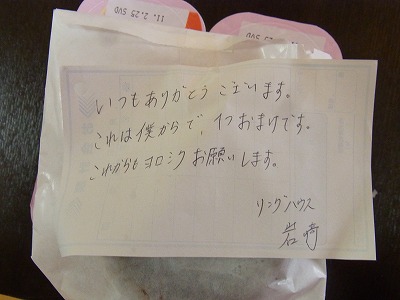 11.2.25 SVD
いつもありがとうございます。
これは僕からで、1つおまけです。
これからもヨロシクお願いします。
リングハウス
岩崎